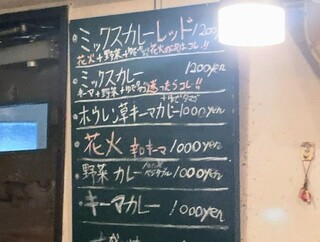 ミックスカレーレッド1200
花火+野菜+ゆで
コレ!!
ミックスカレー 1200yen
キーマ+野菜+ゆで 迷ったらコレ!!
ホウレン草キーマカレー1000yen
花火 辛口キーマ 1000yen
野菜カレー ベジタブル 1000yen
キーマカレー 1000yen